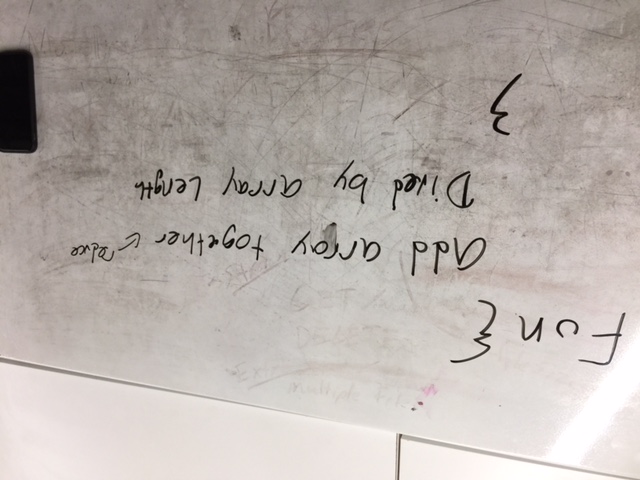 Fun {
add array together ← reduce
Dived by array Length
}